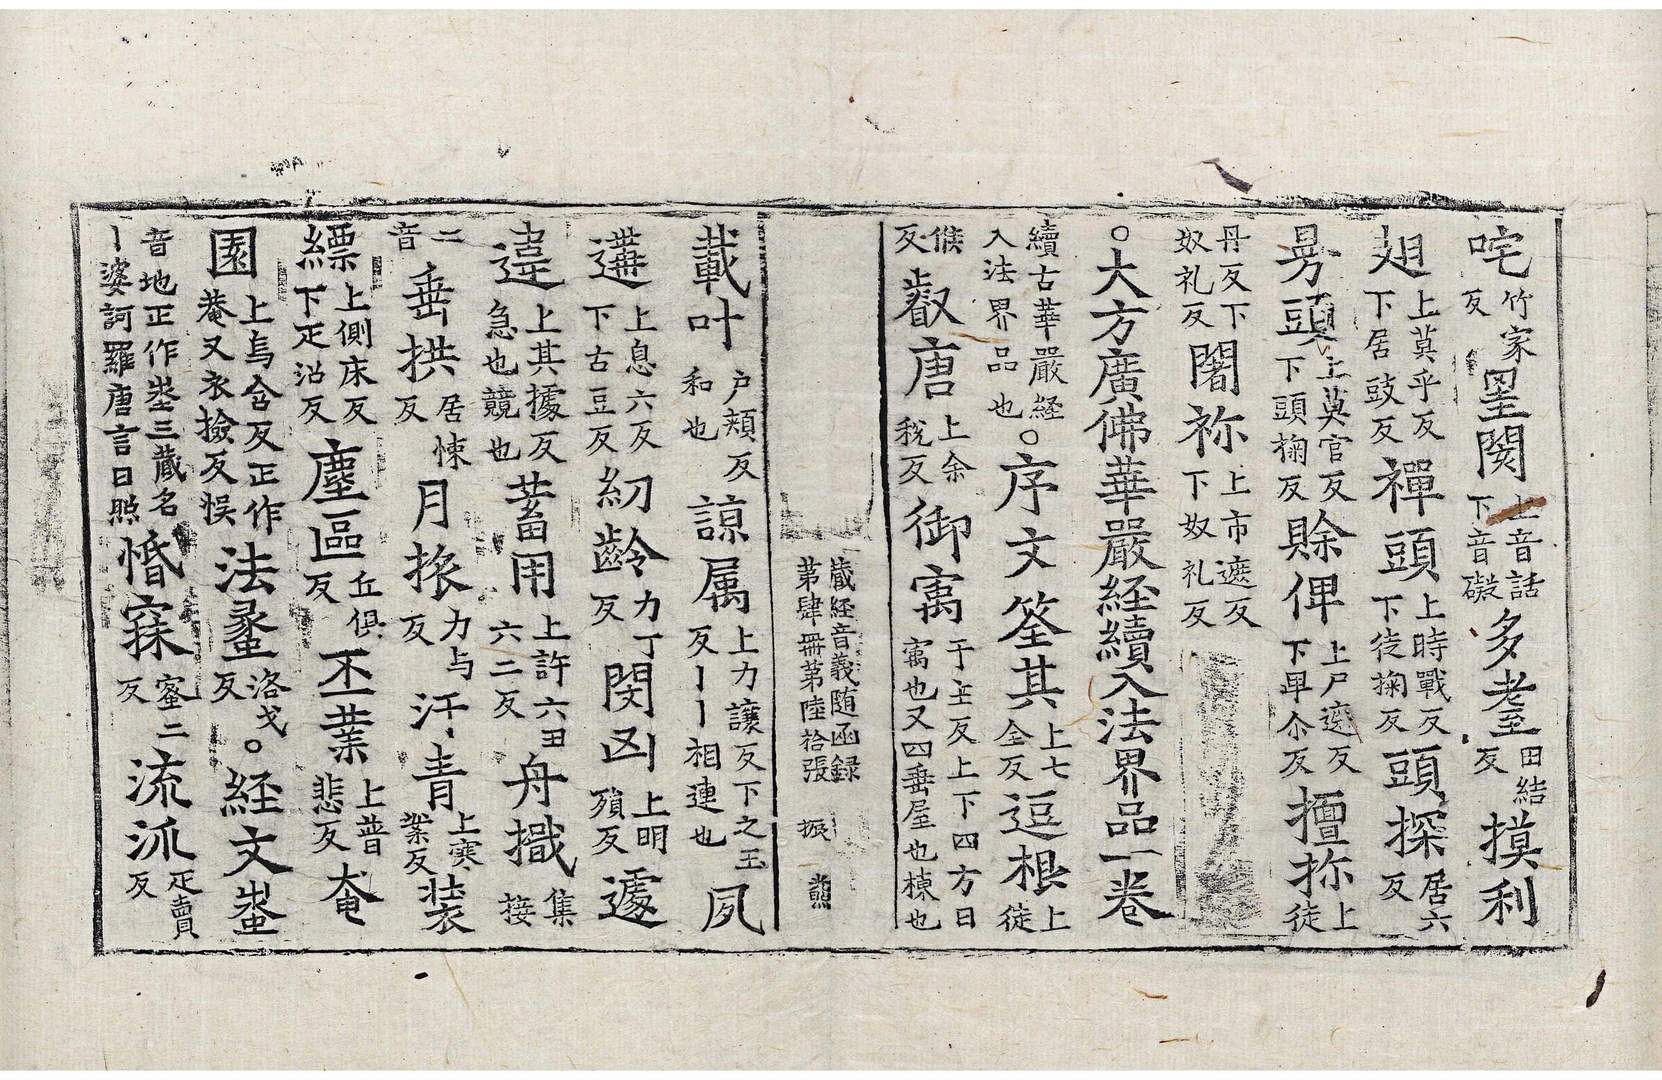 咤竹家反 罣閡上音話下音礙 多耊田結反 摸利
𧿒上莫乎反下居豉反 禪頭上時戰反下徒掬反 頭探居六反
昘頭上莫官反下頭掬反 賒俾上尸遮反下卑尒反 擅抧上徒
丹反下奴礼反 闍祢上市遮反下奴礼反
○大方廣佛華嚴経續入法界品一卷
續古華嚴経入法界品也○序文 筌其上七全反 逗根上徒
候反 叡唐上余稅反 御㝢于主反上下四方曰㝢也又四垂屋也棟也
藏経音義随函録第肆冊第陸拾張 振
載叶户頬反和也 諒属上力讓反下之玉反丨丨相連也 夙
遘上息六反下古豆反 紉齡力丁反 閔凶上明殞反 遽
違上其據反急也競也 蓄用上許六丑六二反 舟檝集接
二音 垂拱居悚反 月㨾力与反 汗青上寒案反 装
縹上側床反下疋沼反 塵區丘俱反 丕業上普悲反 奄
圎上烏含反正作菴又衣撿反悮 法蠡洛戈反○経文 埊
音地正作埊三藏名丨婆訶羅唐言日照 惛寐蜜二反 流沠疋賣反